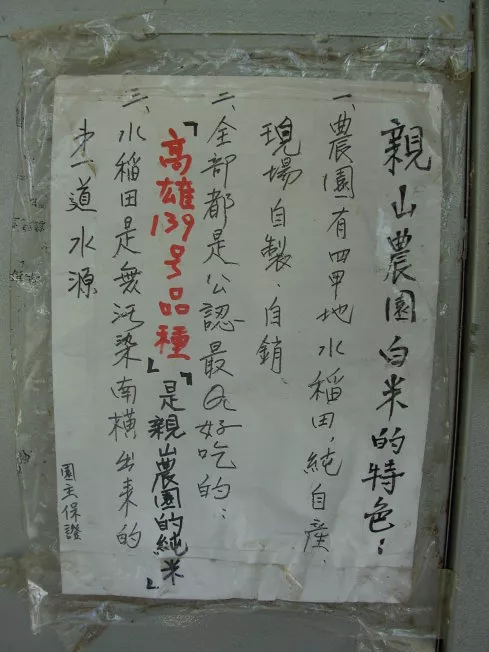 親山農園白米的特色：
一、農園有四甲地水稻田，純自產、
現場自製、自銷、
二、全部都是公認最Q好吃的：
「高雄139号品種」「是親山農園的純米」
三、水稻田是無污染南橫出來的
第一道水源
園主保證